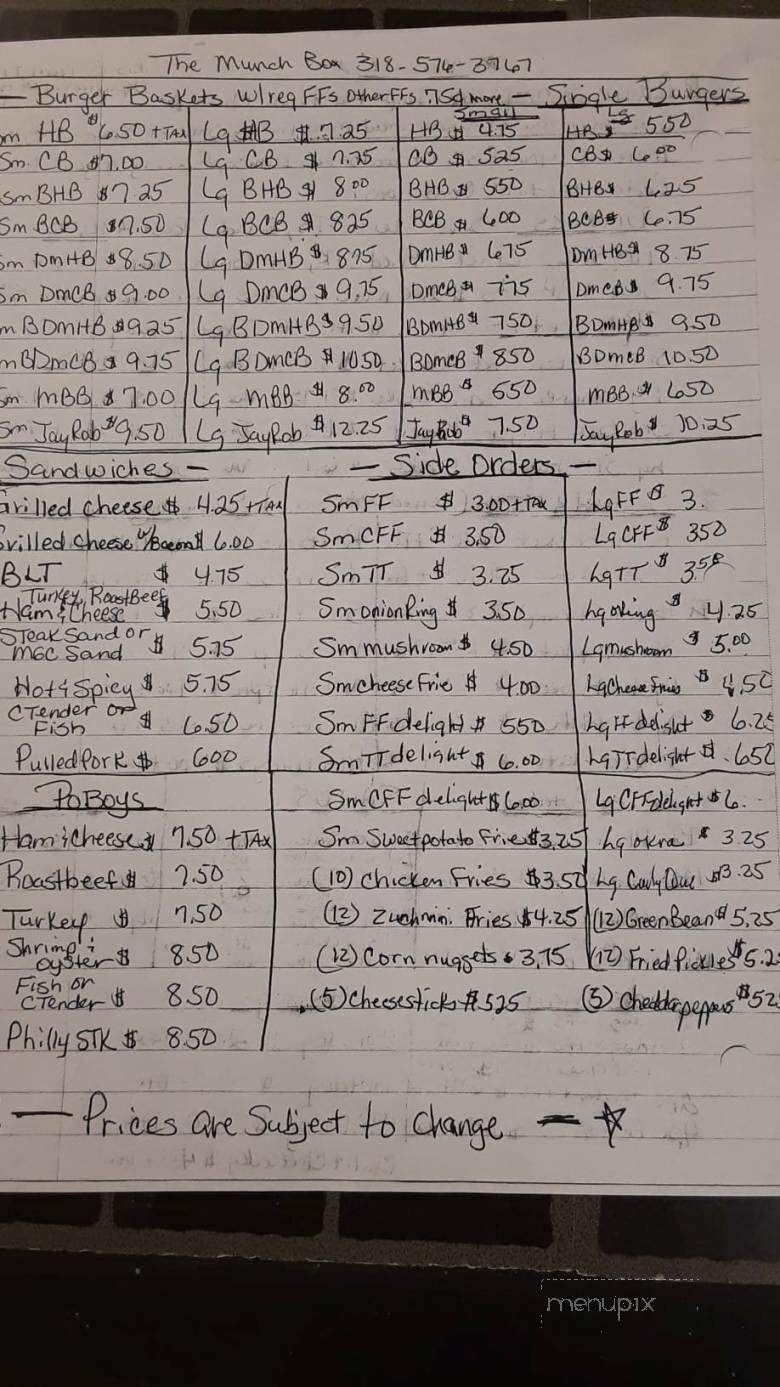 The Munch Box 318-576-3767
— Burger Baskets w/reg FFs Other FFs .75¢ more — Single Burgers
Small Lg
Sm HB $6.50 + TAX Lg HB $ 7.25 HB $ 4.75 HB $ 550
Sm CB $7.00 Lg CB $ 7.75 CB $ 525 CB $ 6.00
Sm BHB $7.25 Lg BHB $ 8.00 BHB $ 550 BHB $ 6.25
Sm BCB $7.50 Lg BCB $ 825 BCB $ 600 BCB $ 6.75
Sm DmHB $8.50 Lg DmHB $ 875 DmHB $ 675 DmHB $ 8.75
Sm DmCB $9.00 Lg DmCB $ 9.75 DmCB $ 775 DmCB $ 9.75
m BDmHB $9.25 Lg BDmHB $ 9.50 BDmHB $ 750 BDmHB $ 9.50
mBDmCB $ 9.75 Lg BDmCB $ 10.50 BDmCB $ 850 BDmCB 10.50
Sm mBB $ 7.00 Lg mBB $ 8.00 mBB $ 650 mBB $ 650
Sm JayRob $9.50 Lg JayRob $ 12.25 JayRob $ 7.50 JayRob $ 10.25
Sandwiches — — Side Orders —
Grilled Cheese $ 4.25 + TAX Sm FF $ 3.00 + TAX Lg FF $ 3.
Grilled Cheese w/Bacon $ 6.00 Sm CFF $ 3.50 Lg CFF $ 350
BLT $ 4.75 Sm TT $ 3.25 Lg TT $ 3.50
Turkey, RoastBeef
Ham & Cheese $ 5.50 Sm onion Ring $ 3.50 Lg oRing $ 4.25
Steak Sand or
MGC Sand $ 5.75 Sm mushroom $ 4.50 Lg mushroom $ 5.00
Hot & Spicy $ 5.75 Sm cheese Frie $ 4.00 Lg Cheese Fries $ 4.50
CTender or
Fish $ 6.50 Sm FF delight $ 550 Lg FF delight $ 6.25
Pulled Pork $ 600 Sm TT delight $ 6.00 Lg TT delight $ .650
PoBoys Sm CFF delight $ 6.00 Lg CFF delight $ 6.
Ham & Cheese $ 7.50 + TAX Sm Sweet potato Fries $3.25 Lg okra $ 3.25
Roastbeef $ 7.50 (10) Chicken Fries $3.50 Lg. Curly Que $3.25
Turkey $ 7.50 (12) Zuchnini Fries $4.25 (12) Green Bean $ 5.25
Shrimp &
oyster $ 8.50 (12) Corn nuggets $ 3.75 (12) Fried Pickles $5.2
Fish or
CTender $ 8.50 (5) Cheesesticks $ 525 (5) Cheddar peppers $52
Philly STK $ 8.50
— Prices are Subject to Change — ☆
menupix